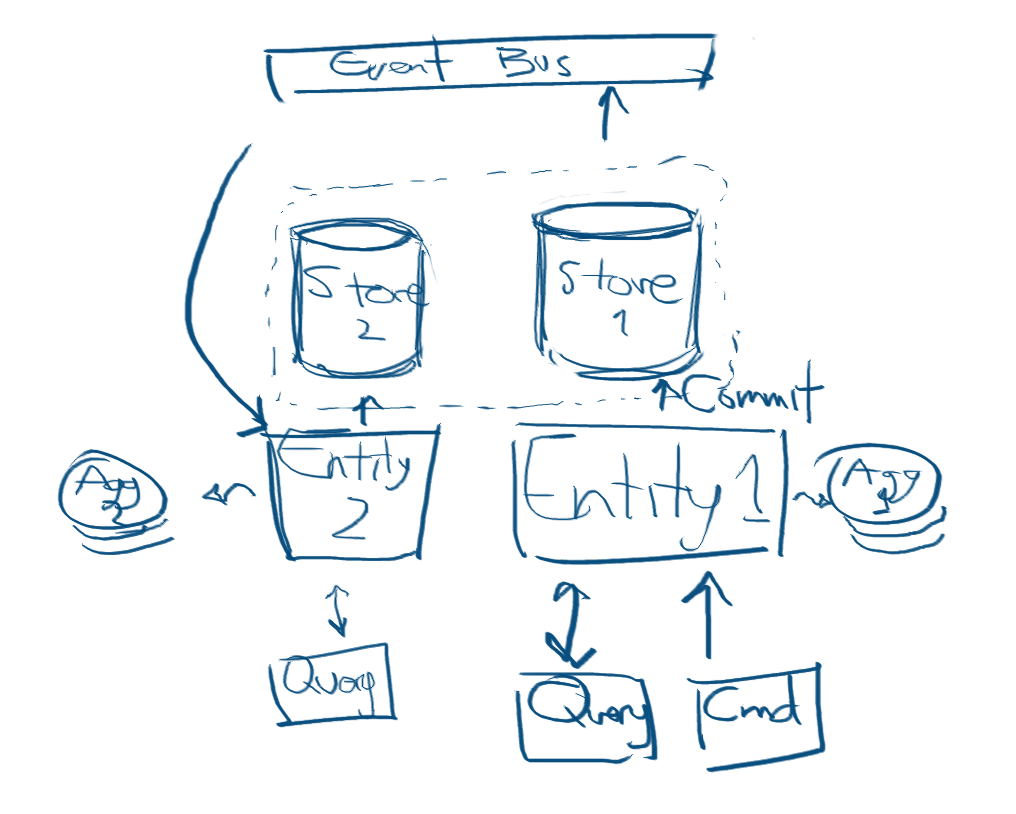 Event Bus
Store
2
Store
1
Commit
Entity
2
Entity 1
Agg
2
Agg
1
Query
Query
Cmd